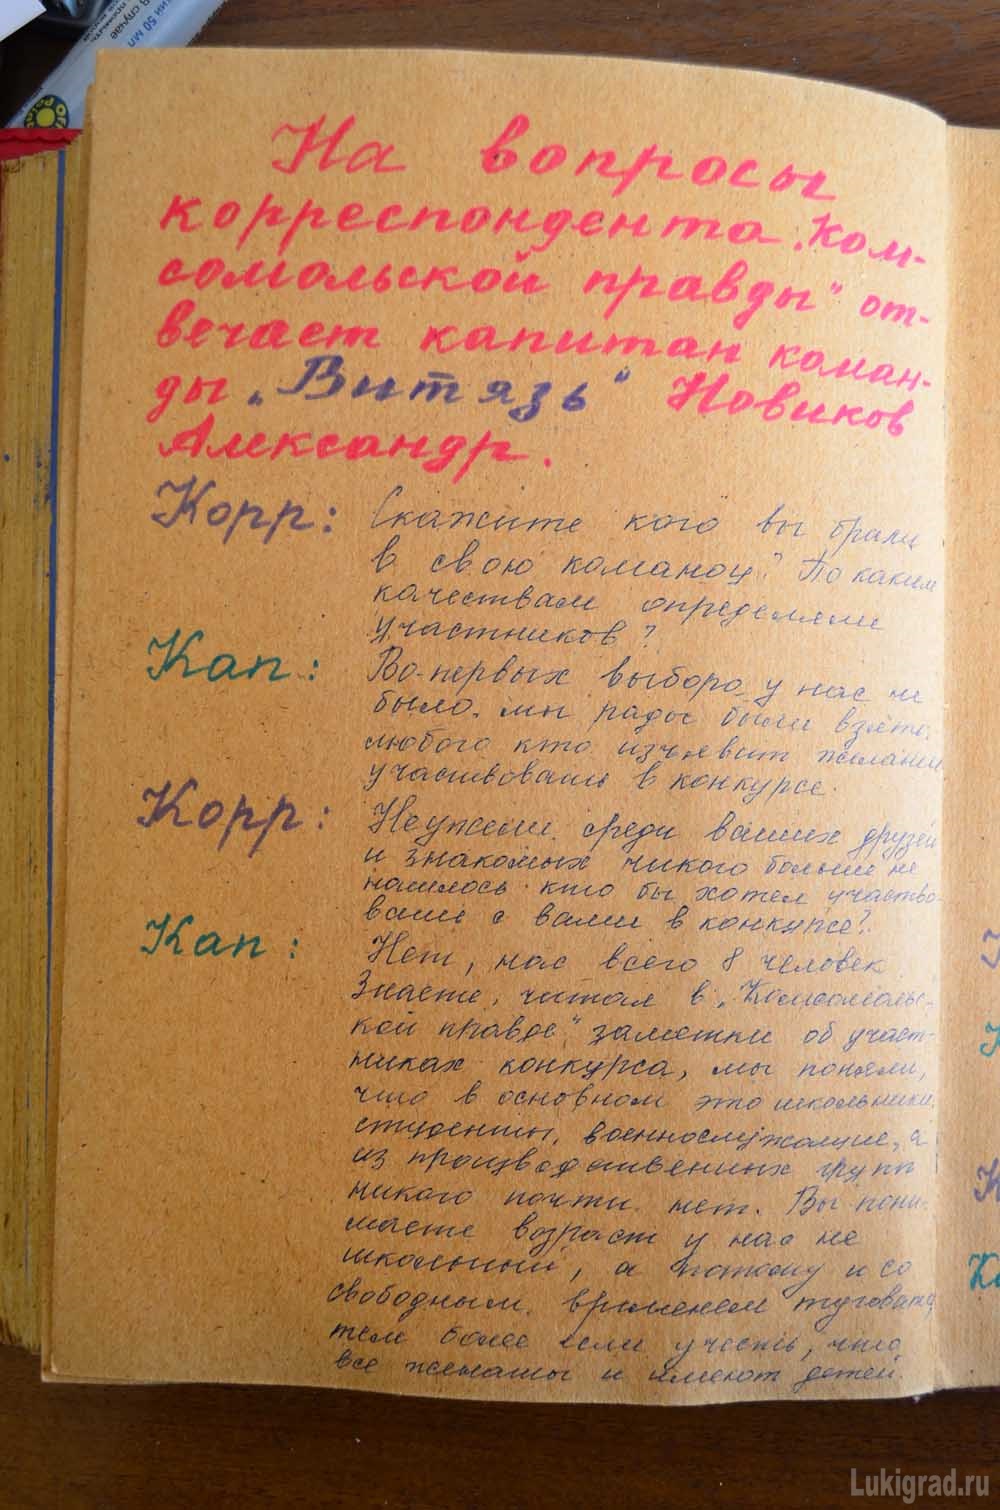 На вопросы
корреспондента „Ком-
сомольской правды" от-
вечает капитан коман-
ды „Витязь" Новиков
Александр.
Корр: Скажите кого вы брали
в свою команду? По каким
качествам определяли
участников?
Кап: Во-первых выбора у нас не
было. мы рады были взять
любого кто изъявит желание
участвовать в конкурсе.
Корр: Неужели среди ваших друзей
и знакомых никого больше не
нашлось кто бы хотел участво-
вать с вами в конкурсе?
Кап: Нет, нас всего 8 человек
Знаете, читая в „Комсомоль-
кой правде" заметки об участ-
никах конкурса, мы поняли,
что в основном это школьники,
студенты, военнослужащие, а
из производственных групп
никого почти нет. Вы пони-
маете возраст у нас не
школьный, а потому и со
свободным временем туговато,
тем более если учесть, что
все женаты и имеют детей.
50 мл
Lukigrad.ru